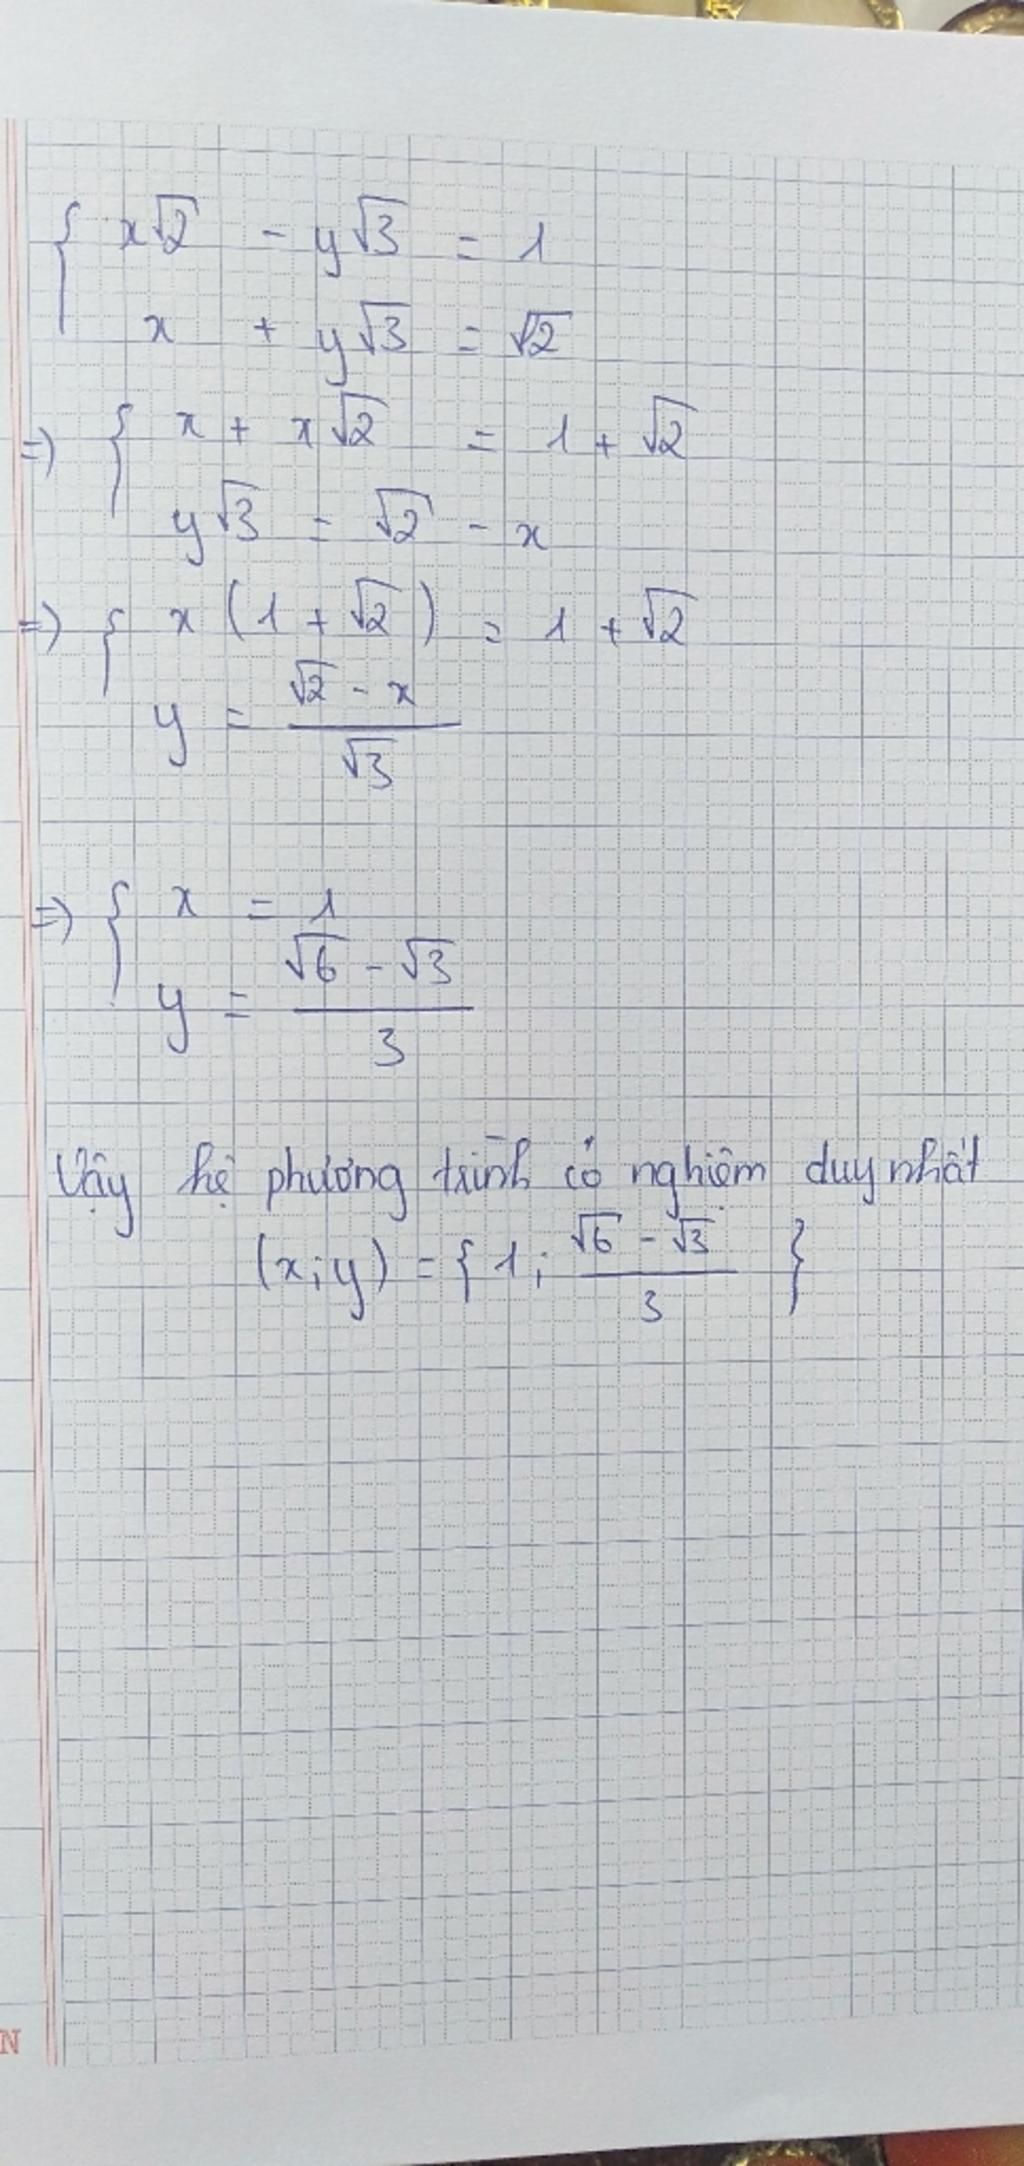 { x√2 - y√3 = 1
x + y√3 = √2
=> { x + x√2 = 1 + √2
y√3 = √2 - x
=> { x (1 + √2) = 1 + √2
y = (√2 - x)/√3
=> { x = 1
y = (√6 - √3)/3
Vậy hệ phương trình có nghiệm duy nhất
(x;y) = { 1; (√6 - √3)/3 }
N